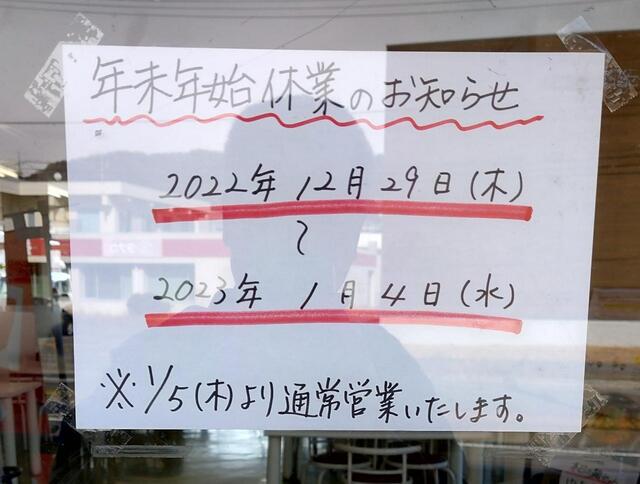 年末年始休業のお知らせ
2022年 12月29日(木)
～
2023年 1月4日(水)
※1/5(木)より通常営業いたします。